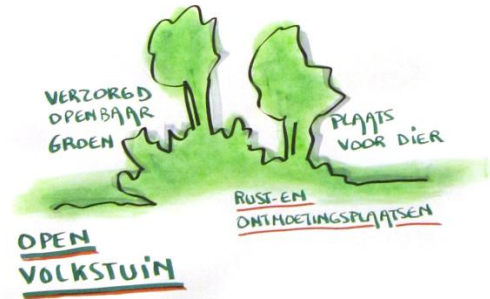 VERZORGD
OPENBAAR
GROEN
PLAATS
VOOR DIER
RUST- EN
ONTMOETINGSPLAATSEN
OPEN
VOLKSTUIN